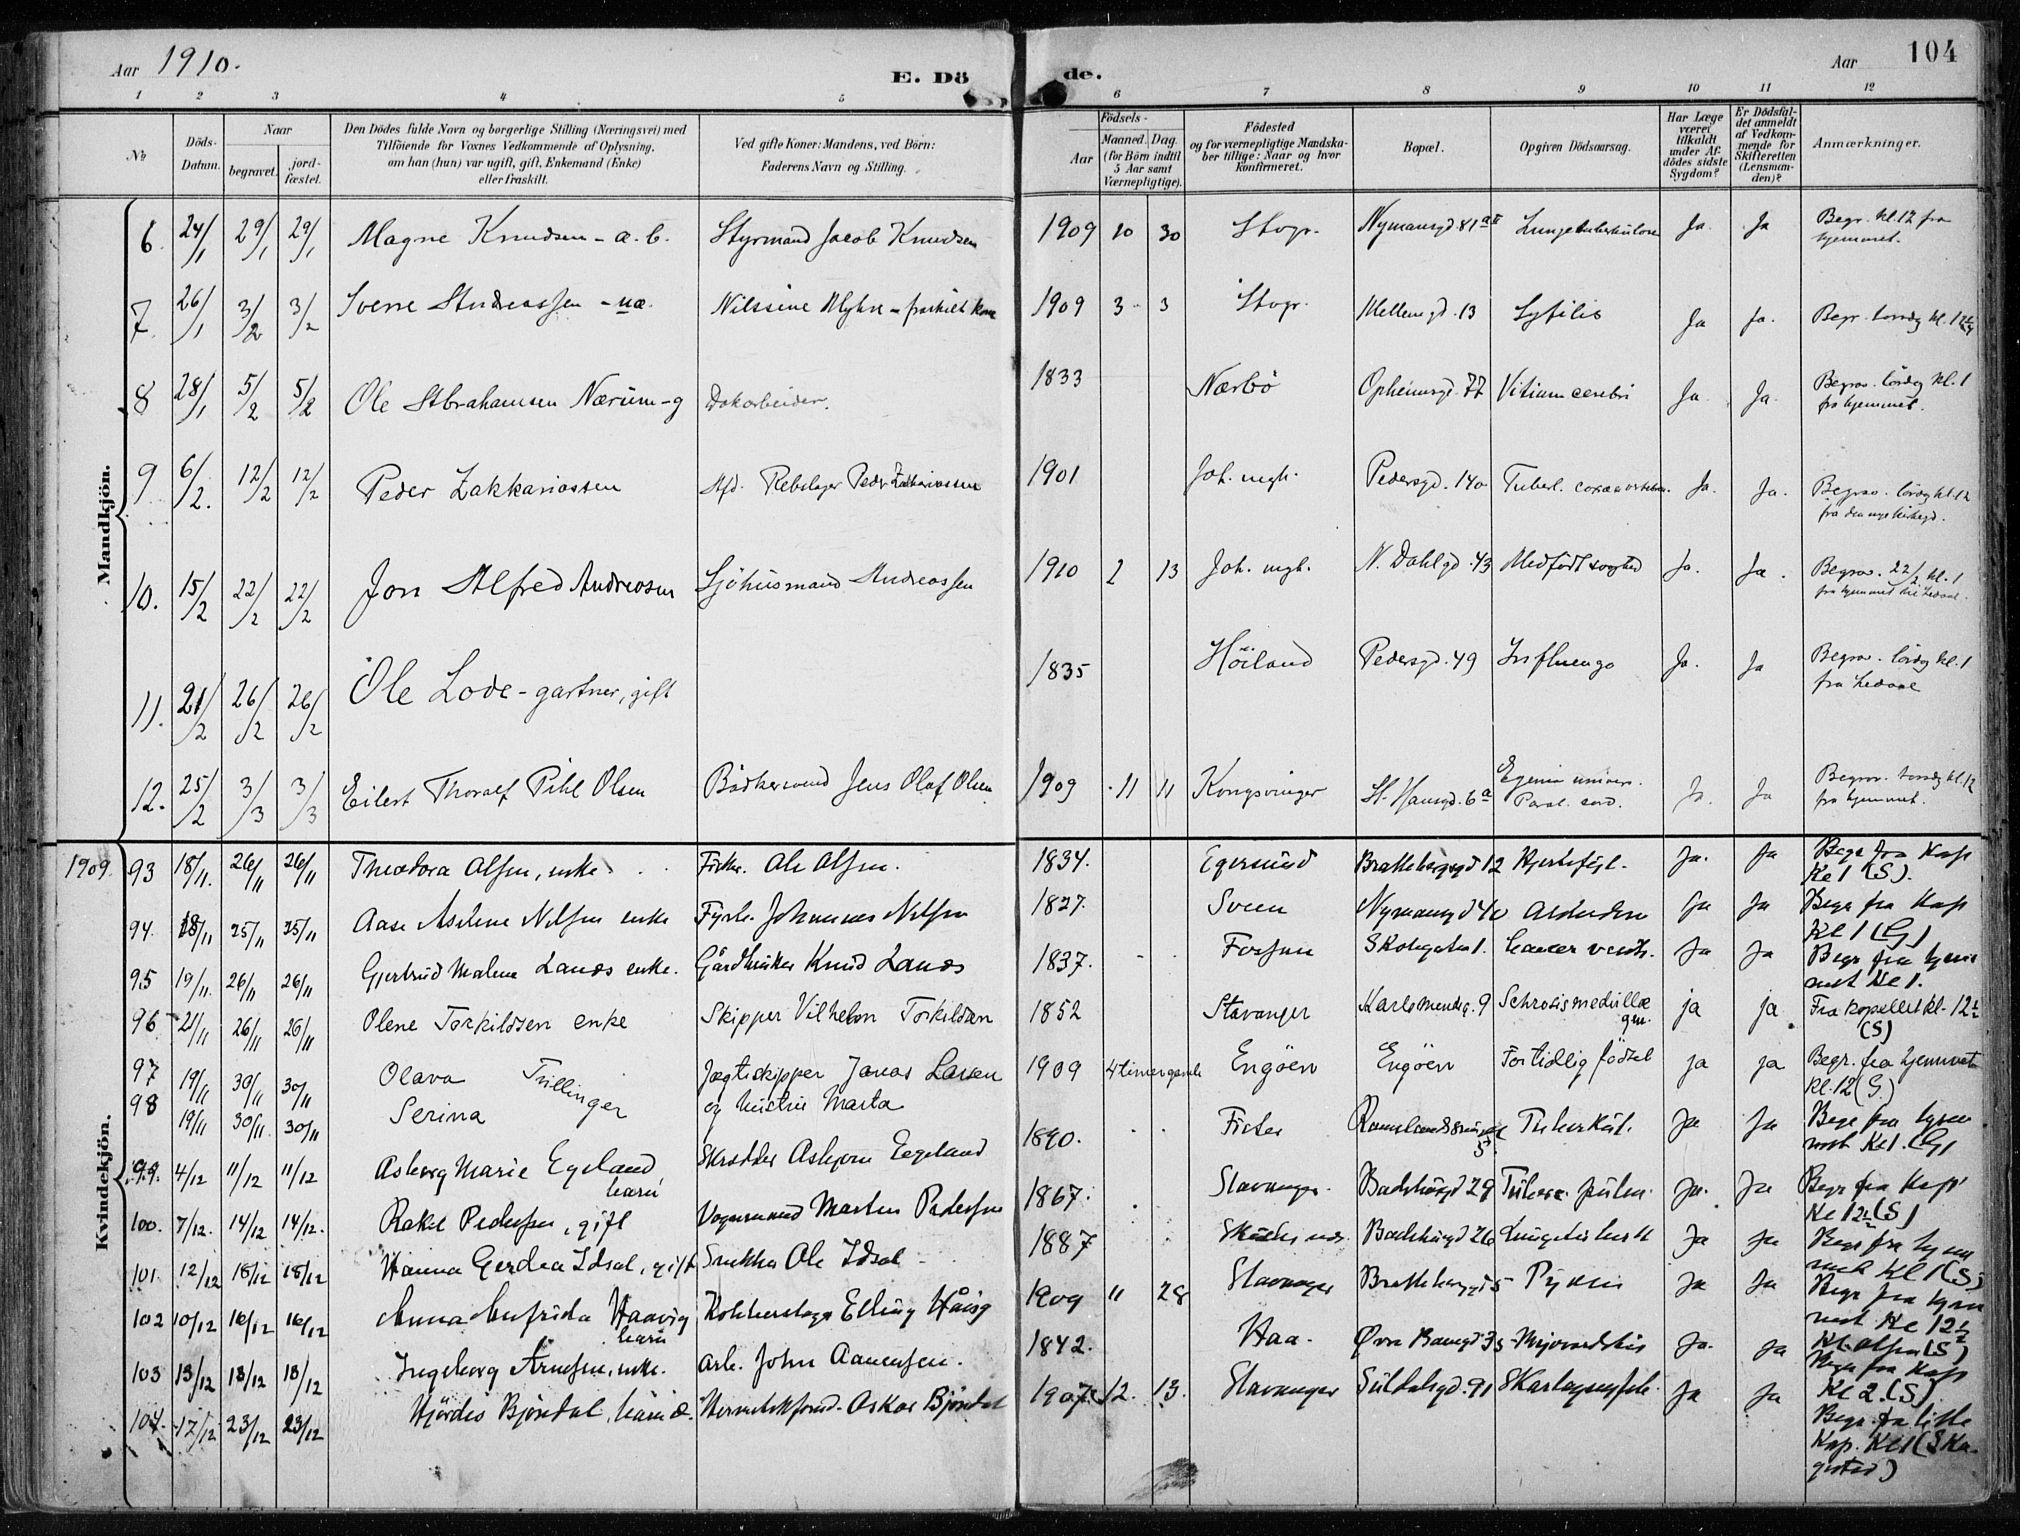 Aar 1910.
E. Dö
de.
Aar
104
1 2 3 4 5 6 7 8 9 10 11 12
No
Döds-Datum.
Naar begravet. jordfæstet.
Den Dödes fulde Navn og borgerlige Stilling (Næringsvei) med
Tilföiende for Voxnes Vedkommende af Oplysning,
om han (hun) var ugift, gift, Enkemand (Enke)
eller fraskilt.
Ved gifte Koner: Mandens, ved Börn:
Faderens Navn og Stilling.
Födsels-
Aar
Maaned. Dag.
(for Börn indtil
5 Aar samt
Værnepligtige).
Födested
og for værnepligtige Mandskaber tillige: Naar og hvor
konfirmeret.
Bopæl.
Opgiven Dödsaarsag.
Har Læge været tilkaldt under Afdödes sidste Sygdom?
Er Dödsfaldet anmeldt af Vedkommende for Skifteretten (Lensmanden)?
Anmærkninger.
Mandkjön.
6. 24/1 29/1 29/1 Magne Knudsen - a.b. Styrmand Jacob Knudsen 1909 10 30 Stvgr. Nymansgd. 81 a II Lungetuberkulose Ja. Ja Begr. kl. 12 fra hjemmet.
7. 26/1 3/2 3/2 Sverre Andreassen - uæ. Nilssine Myhre - fraskilt kone 1909 3 3 Stvgr. Mellemgd. 13 Syfilis Ja Ja. Begr. torsdg kl. 12
8 28/1 5/2 5/2 Ole Abrahamsen Nærum - g Dokarbeider. 1833 Nærbö Opheimsgd. 77 Vitium cerebri Ja. Ja. Begrav. lördg kl. 1 fra hjemmet.
9 6/2. 12/2 12/2 Peder Zakkariassen Afd. Rebslager Peder Zakkariassen 1901 Joh. mgh. Pedersgd. 140 Tuberl. Ja. Ja. Begrav. lördg kl. 12 fra den nye kirkegd.
10. 15/2 22/2 22/2 Jon Alfred Andreasen Sjöhusmand Andreassen 1910 2 13 Joh. mgh. N. Dahlgd. 43 Medfödt svaghed Ja. Ja. Begrav. 22/2 kl. 1 fra hjemmet til Ledaal.
11. 21/2 26/2 26/2 Ole Lode - gartner, gift 1835 Höiland Pedersgd. 49 Influenza Ja. Ja Begrav. lördg kl. 1 fra Ledaal
12. 25/2 3/3 3/3 Eilert Thoralf Pihl Olsen Bödkersvend Jens Olaf Olsen 1909 11 11 Kongsvinger St. Hansgd. 6 a Ja. Ja Begrav. torsdg kl. 12 fra hjemmet.
Kvindekjön.
1909. 93 18/11. 26/11 26/11 Theodora Olsen, enke Fisker. Ole Olsen. 1834. Egersund Brattebergsgd 12 Hjertefeil. Ja. Ja Begr fra Kap Kl 1 (S).
94. 18/11 25/11 25/11 Aase Aselene Nilsen enke Fyrb. Johannes Nilsen 1827. Sveen Nymansgd 40 Alderdom Ja Ja Begr fra Kap Kl 1 (G)
95 19/11. 26/11 26/11 Gjertrud Malene Lanes enke. Gårdbruker Knud Lanes 1837. Forsand Skolegaten 1. Cancer ventr. Ja Ja Begr fra hjemmet Kl 1.
96 21/11 26/11 26/11 Olene Torkildsen enke Skipper Vilhelm Torkildsen 1852 Stavanger Karlsmindeg. 9 Schrosis medullæ ja ja Fra kapellet kl. 12½ (S)
97 19/11 30/11 30/11 Olava Tvillinger Jægtskipper Jonas Larsen 1909 4 timer gamle Engöen Engöen Fortidlig födsel ja ja Begr. fra hjemmet kl. 12 (S.)
98 19/11 30/11. 30/11 Serina og hustru Marta
99. 4/12 11/12 11/12 Asberg Marie Egeland barn Skrædder Asbjørn Egeland 1890. Fister Tuberkul. Ja Ja Begr fra hjemmet Kl 1. (G)
100. 7/12. 14/12 14/12. Rakel Pedersen, gift Vognmand Martin Pedersen 1867. Stavanger. Badehusgd 29 Ja. Ja Begr fra Kap Kl 12½ (S)
101. 12/12 18/12 18/12 Hanna Gerdea Idsal, gift Snekker Ole Idsal 1887 Badehusgd 26 Ja Ja Begr fra hjemmet Kl 1 (S)
102 10/12 16/12 16/12 Anna Anfrida Haavig barn Elling Håvig 1909 11 28 Stavanger 5 Ja Ja Begr fra hjemmet Kl 12½
103 13/12 18/12 18/12 Ingeborg Arnesen, enke. Arb. John Aanensen. 1842. Haa. Øvre Banegd 33 Ja. Ja Begr fra Kap Kl 2. (S)
104. 17/12 23/12 23/12 Hjördis Bjöndal, barn æ. Oskar Bjöndal 1907 12. 13. Stavanger Suldalsgd. 91 Skarlagensfeb. Ja Ja Begr. fra lille Kap. Kl 1 (Skagestad)